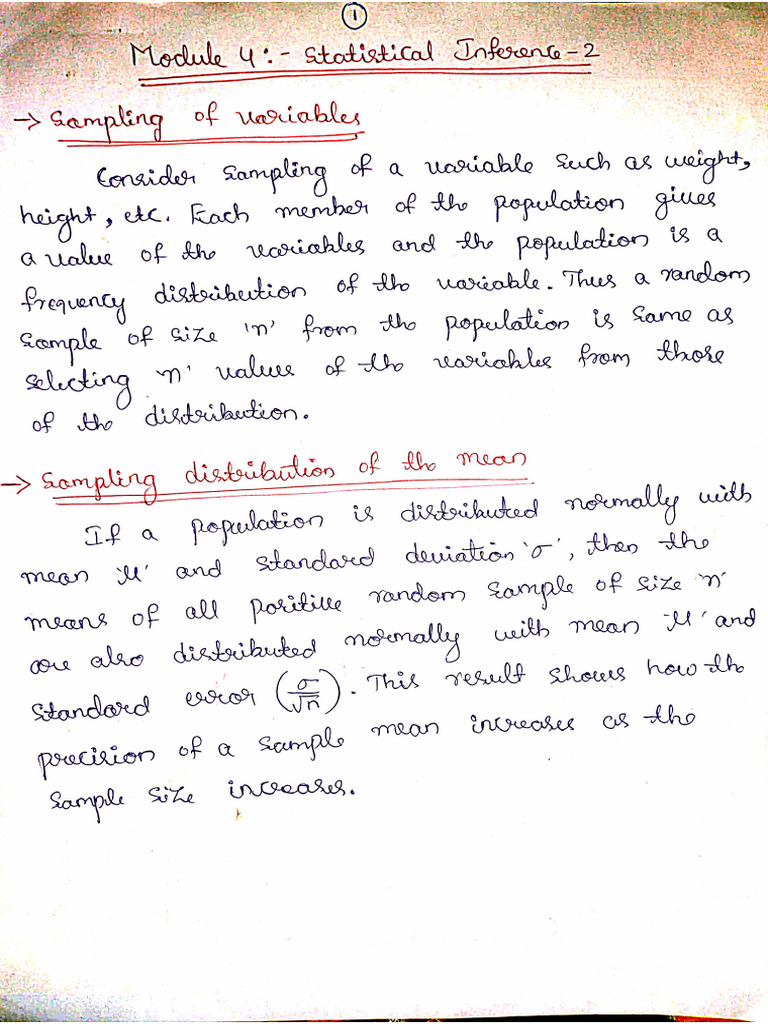 1
Module 4:- Statistical Inference-2
→ Sampling of variables
Consider sampling of a variable such as weight,
height, etc. Each member of the population gives
a value of the variables and the population is a
frequency distribution of the variable. Thus a random
sample of size 'n' from the population is same as
selecting 'n' values of the variables from those
of the distribution.
→ Sampling distribution of the mean
If a population is distributed normally with
mean 'μ' and standard deviation 'σ', then the
means of all positive random sample of size 'n'
are also distributed normally with mean 'μ' and
standard error (σ/√n). This result shows how the
precision of a sample mean increases as the
sample size increases.